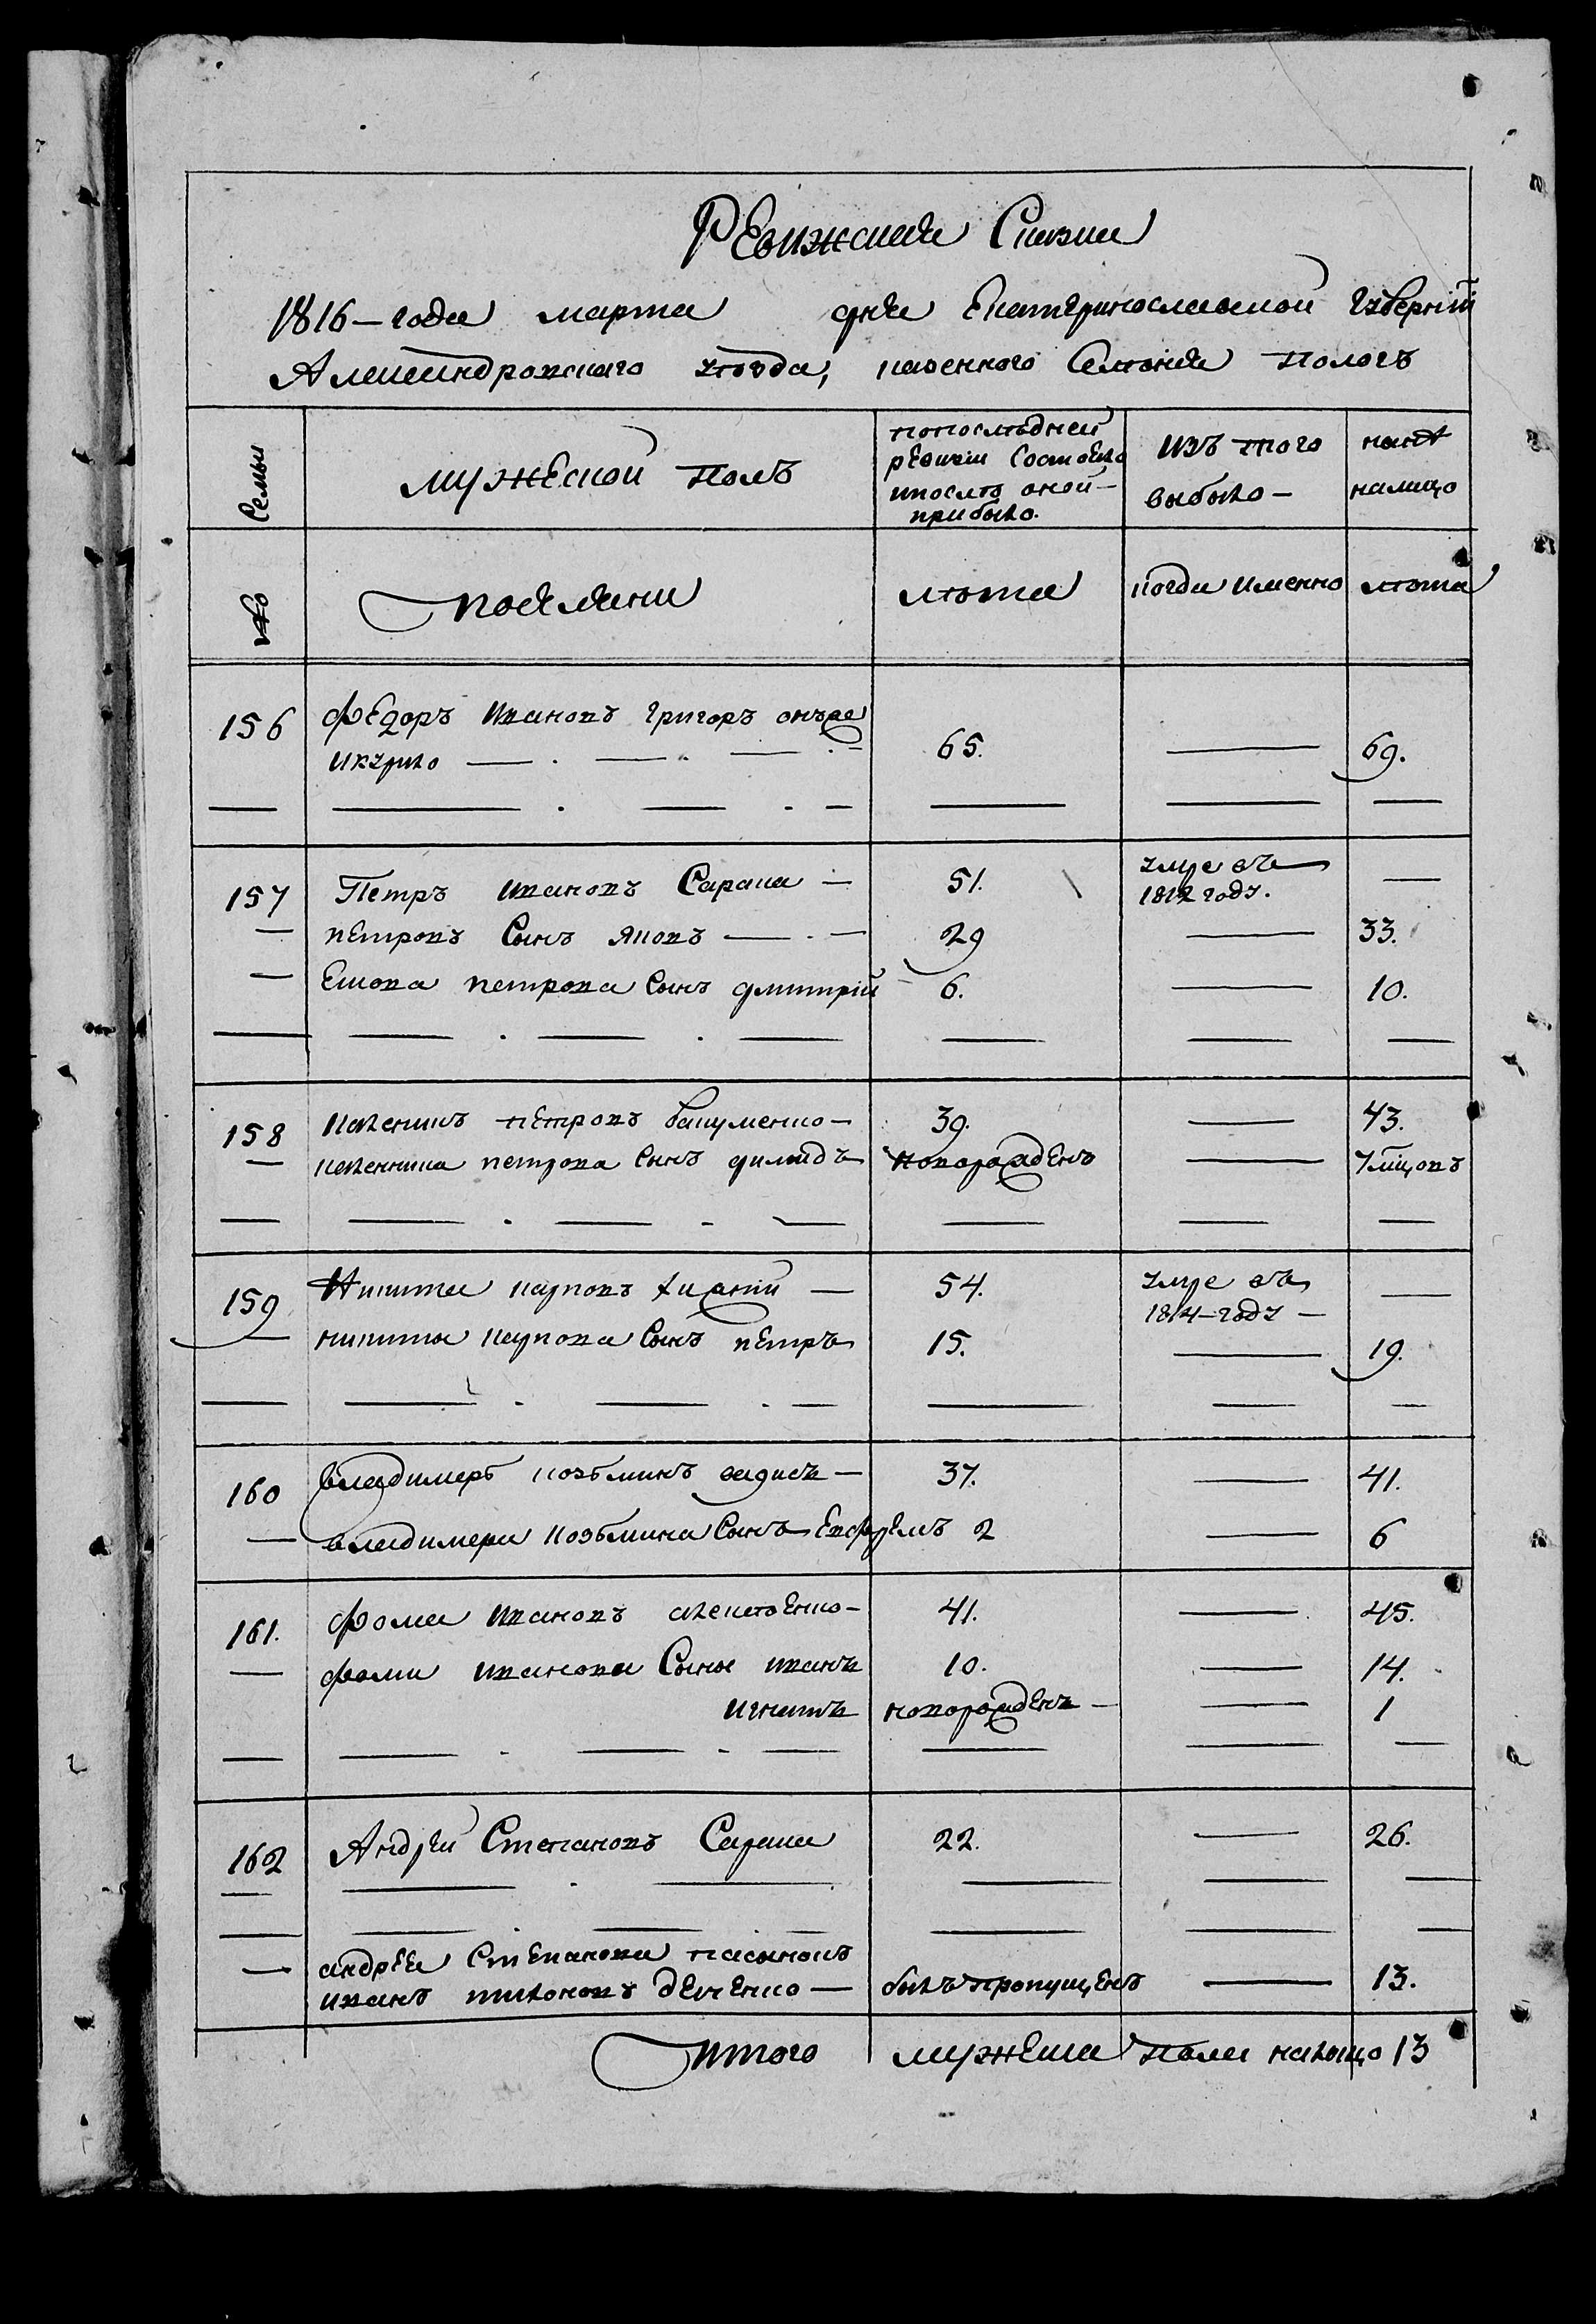 Ревижская Сказка
1816 – года марта дня Екатеринославской губерний
Александровскаго уезда, казенного Селения Пологъ
Семьи
мужеской полъ
попоследней ревизии Состояло ипосле оной – прибыло.
изъ того выбыло –
ныне налицо
№
поселяни
лета
когда именно
лета
156 Федоръ Ивановъ Григоръ онъже
65. 69.
157 Петръ ивановъ Сарана – 51. умре въ 1812 году. —
— петровъ Сынъ яковъ — . — 29 — 33.
— Екова петрова Сынъ дмитрий 6. — 10.
158 Каленикъ петровъ бакуменко – 39. — 43.
— каленника петрова Сынъ новорожденъ — 7 мцовъ
159 Никита карповъ – 54. умре въ 1814 – году – —
— никиты карпова Сынъ петръ 15. — 19.
160 Владимеръ козьминъ – 37. — 41.
— владимера козьмина Сынъ Ефремъ 2 — 6
161. Фома ивановъ алексеенко – 41. — 45.
— фоми иванова Сыны иванъ 10. — 14.
игнатъ новорожденъ – — 1
162 Андрей Степановъ Сарана 22. — 26.
— андрея Степанова пасынокъ
иванъ тихоновъ — былъ пропущенъ — 13.
Итого мужеска пола налицо 13